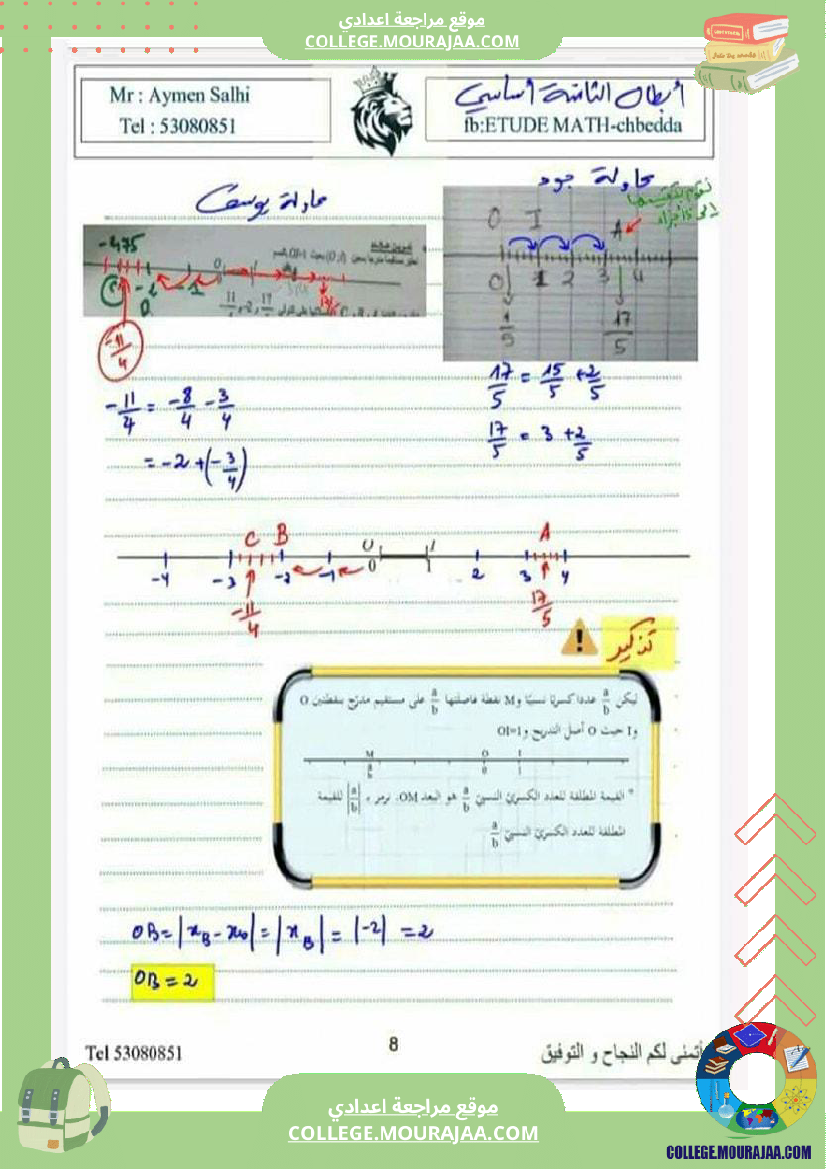 موقع مراجعة اعدادي
COLLEGE.MOURAJAA.COM
Mr : Aymen Salhi
Tel : 53080851
أبطال الثامنة أساسي
fb:ETUDE MATH-chbedda
محاولة جود
محاولة يوسف
نقوم بتقسيمها
O I A
0 1 2 3 4
1/5 17/5
-2 -1 0
-11/4
17/5 = 15/5 + 2/5
17/5 = 3 + 2/5
-11/4 = -8/4 - 3/4
= -2 + (-3/4)
C B O I A
-4 -3 -2 -1 0 1 2 3 4
-11/4 17/5
تذكير
ليكن a/b عددا كسريا نسبيا و M نقطة فاصلتها a/b على مستقيم مدرّج بنقطتين O
و I حيث O أصل التدريج و OI=1
M O I
a/b 0 1
* القيمة المطلقة للعدد الكسري النسبي a/b هو البعد OM. نرمز بـ |a/b| للقيمة
المطلقة للعدد الكسري النسبي a/b
OB = |xB - xO| = |xB| = |-2| = 2
OB = 2
Tel 53080851
8
أتمنى لكم النجاح و التوفيق
موقع مراجعة اعدادي
COLLEGE.MOURAJAA.COM
COLLEGE.MOURAJAA.COM